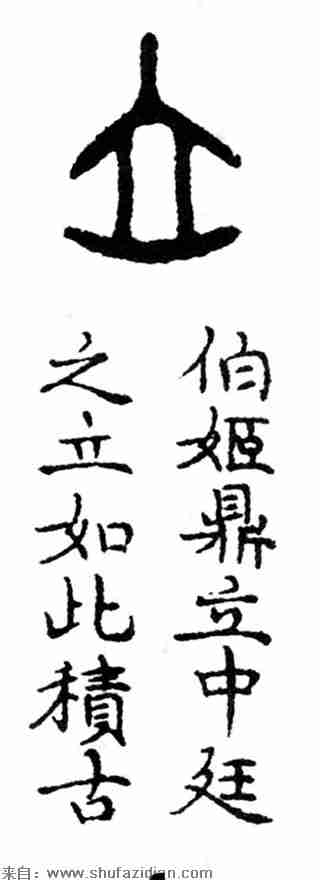 立
伯姬鼎立中廷
之立如此積古
来自：www.shufazidian.com